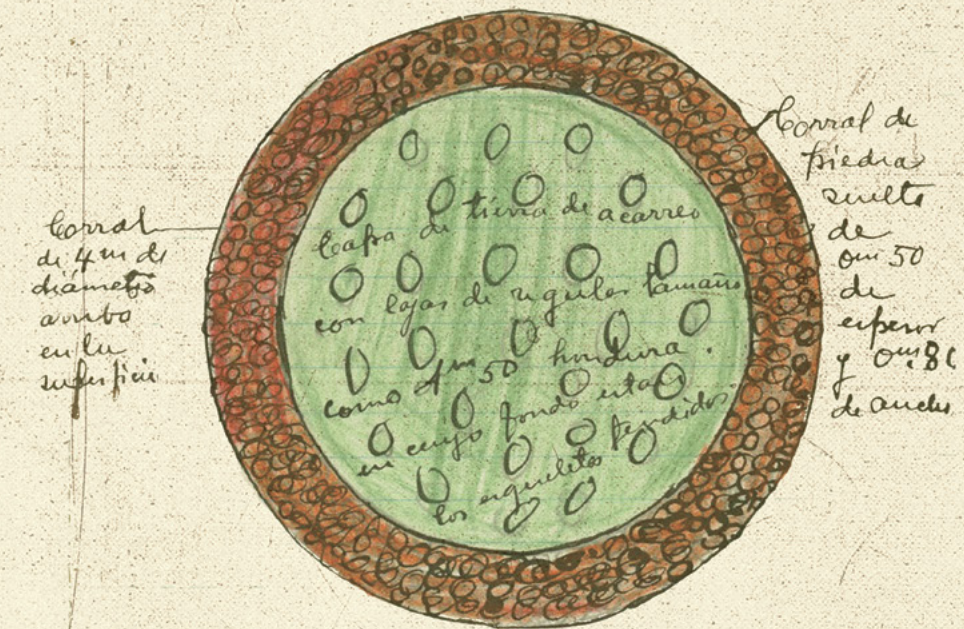 Corral
de 4 m de
diámetro
arriba
en la
superficie
Capa de tierra de acarreo
con lajas de regular tamaño
como 4m 50 hondura.
en cuyo fondo estan
los esqueletos fundidos
Corral de
piedra
suelta
de
0m 50
de
espesor
y 0m.80
de ancho